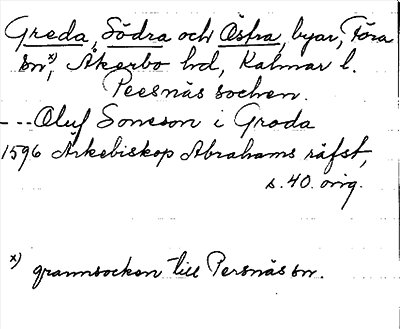 Greda, Södra och Östra, byar, Föra
sn x), Åkerbo hd, Kalmar l.
Peesnäs socken.
--- Oluf Soneson i Groda
1596 Ärkebiskop Abrahams räfst,
s. 40. orig.
x) grannsocken till Persnäs sn.